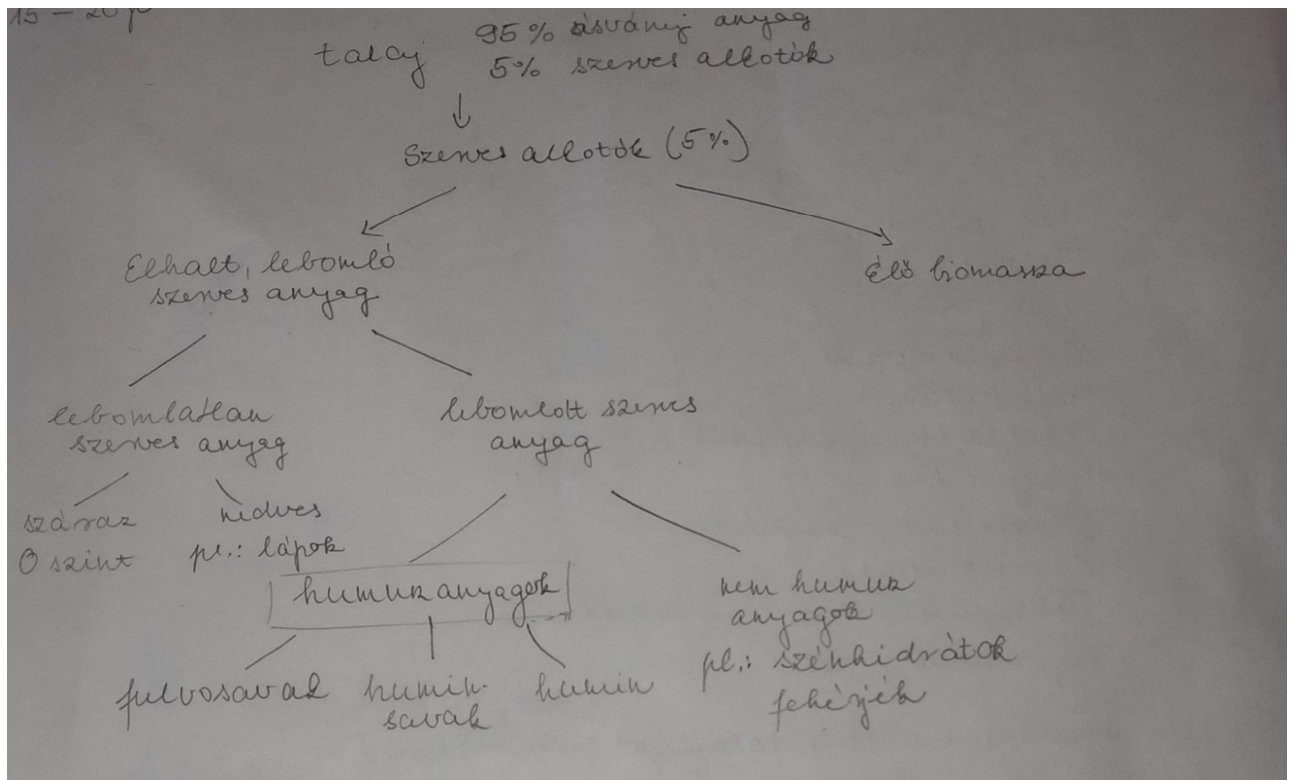 15 - 20 p
95% ásványi anyag
talaj
5% szerves alkotók
Szerves alkotók (5%)
Elhalt, lebomló
szerves anyag
Élő biomassza
lebomlatlan
szerves anyag
lebomlott szerves
anyag
száraz
O szint
nedves
pl.: lápok
humuszanyagok
nem humusz
anyagok
pl.: szénhidrátok
fehérjék
fulvosavak
humin-
savak
humin